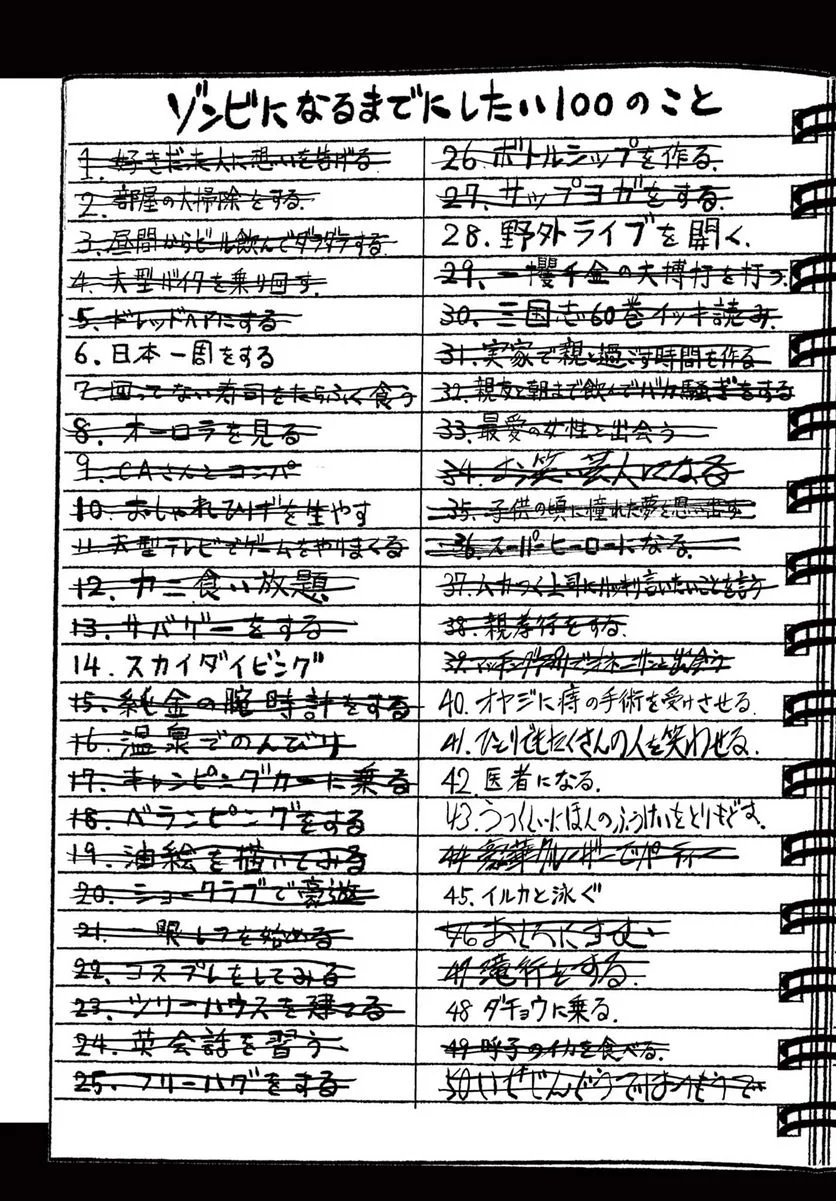 ゾンビになるまでにしたい100のこと
1. 好きだった人に想いを告げる
2. 部屋の大掃除をする.
3. 昼間からビール飲んでダラダラする
4. 大型バイクを乗り回す.
5. ドレッドヘアにする
6. 日本一周をする
7. 回ってない寿司をたらふく食う
8. オーロラを見る
9. CAさんとコンパ
10. おしゃれひげを生やす
11. 大型テレビでゲームをやりまくる
12. カニ食い放題
13. サバゲーをする
14. スカイダイビング
15. 純金の腕時計をする
16. 温泉でのんびり
17. キャンピングカーに乗る
18. ベランピングをする
19. 油絵を描いてみる
20. ショークラブで豪遊
21. 一眼レフを始める
22. コスプレをしてみる
23. ツリーハウスを建てる
24. 英会話を習う
25. フリーハグをする
26. ボトルシップを作る.
27. サップヨガをする.
28. 野外ライブを開く.
29. 一攫千金の大博打を打つ
30. 三国志60巻イッキ読み.
31. 実家で親と過ごす時間を作る
32. 親友と朝まで飲んでバカ騒ぎをする
33. 最愛の女性と出会う
34. お笑い芸人になる
35. 子供の頃に憧れた夢を思い出す.
36. スーパーヒーローになる.
37. ムカつく上司にハッキリ言いたいことを言う
38. 親孝行をする.
39. マッチングアプリでオネーサンと出会う
40. オヤジに痔の手術を受けさせる.
41. ひとりでもたくさんの人を笑わせる.
42. 医者になる.
43. うつくしいにほんのふうけいをとりもどす.
44. 豪華クルーザーでパーティー
45. イルカと泳ぐ
46
47. 滝行をする.
48 ダチョウに乗る.
49. 呼子のイカを食べる.
50.